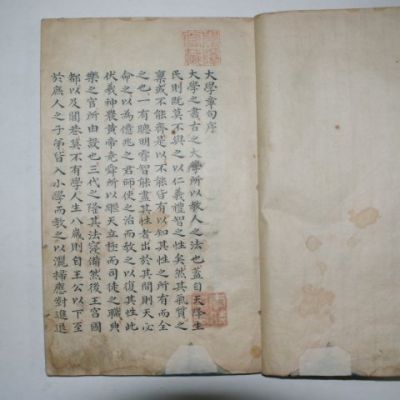 大學章句序
大學之書古之大學所以教人之法也蓋自天降生
民則既莫不與之以仁義禮智之性矣然其氣質之
稟或不能齊是以不能皆有以知其性之所有而全
之也一有聰明睿智能盡其性者出於其間則天必
命之以為億兆之君師使之治而教之以復其性此
伏羲神農黃帝堯舜所以繼天立極而司徒之職典
樂之官所由設也三代之隆其法寖備然後王宮國
都以及閭巷莫不有學人生八歲則自王公以下至
於庶人之子弟皆入小學而教之以灑掃應對進退